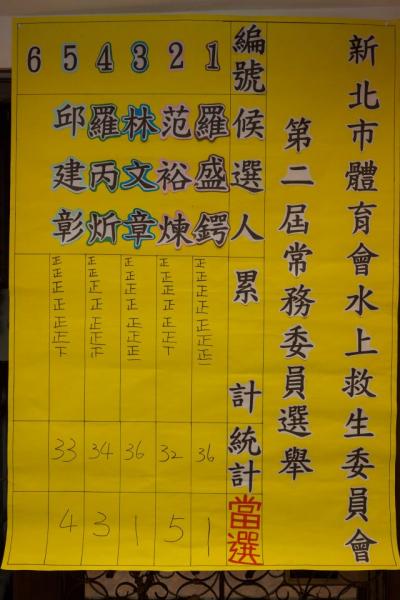 新北市體育會水上救生委員會
第二屆常務委員選舉
編號 候選人 累計 統計 當選
1 羅盛鍔 正正正正正正正一 36 1
2 范裕煉 正正正正正正丅 32 5
3 林文章 正正正正正正正一 36 1
4 羅丙炘 正正正正正正 34 3
5 邱建彰 正正正正正正下 33 4
6